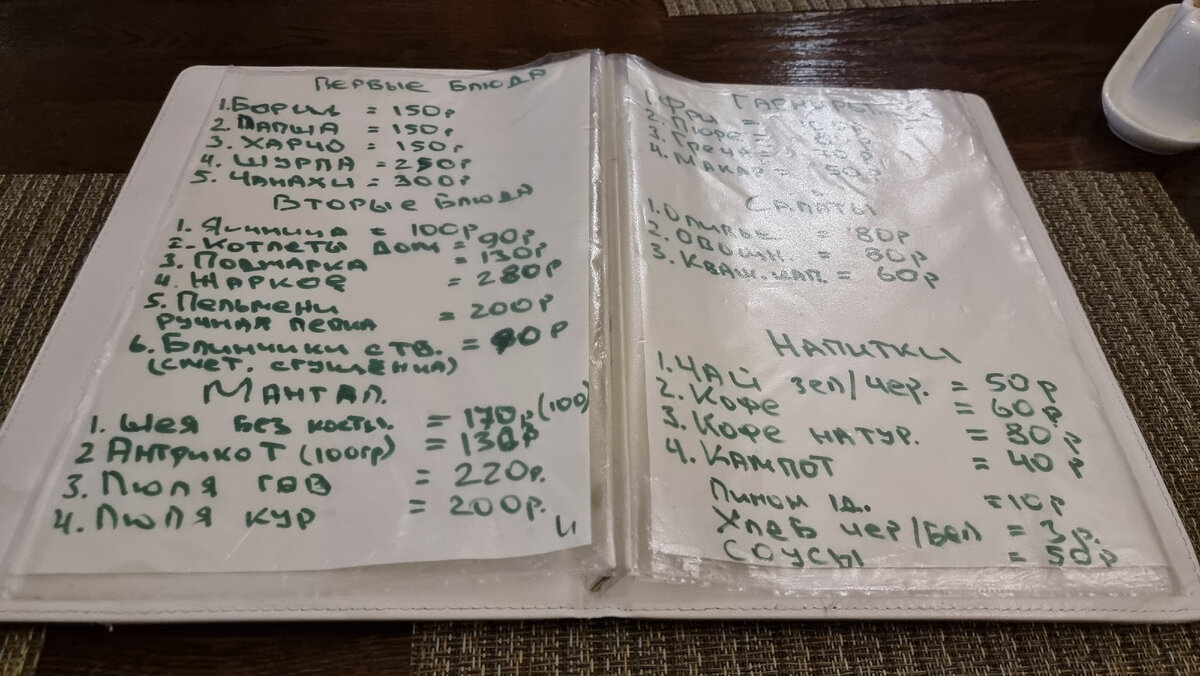 Первые блюда
1. Борщ = 150р
2. Лапша = 150р
3. Харчо = 150р
4. Шурпа = 250р
5. Чанахи = 300р
Вторые блюда
1. Яичница = 100р
2. Котлеты дом = 90р
3. Поджарка = 130р
4. Жаркое = 280р
5. Пельмени
ручная лепка = 200р
6. Блинчики с тв. = 90р
(смет. сгущенка)
Мангал.
1. Шея без кости. = 170р (100)
2 Антрикот (100гр) = 130р
3. Люля гов = 220р.
4. Люля кур = 200р.
Гарниры
1. Фри =
2. Пюре =
3. Греча =
4. Макар = 50р
Салаты
1. Оливье = 80р
2. Овощн. = 80р
3. Кваш. кап. = 60р
Напитки
1. Чай зел/чер. = 50р
2. Кофе = 60р
3. Кофе натур. = 80р
4. Кампот = 40р
Лимон 1д. = 10р
Хлеб чер/бел = 3р.
Соусы = 50р